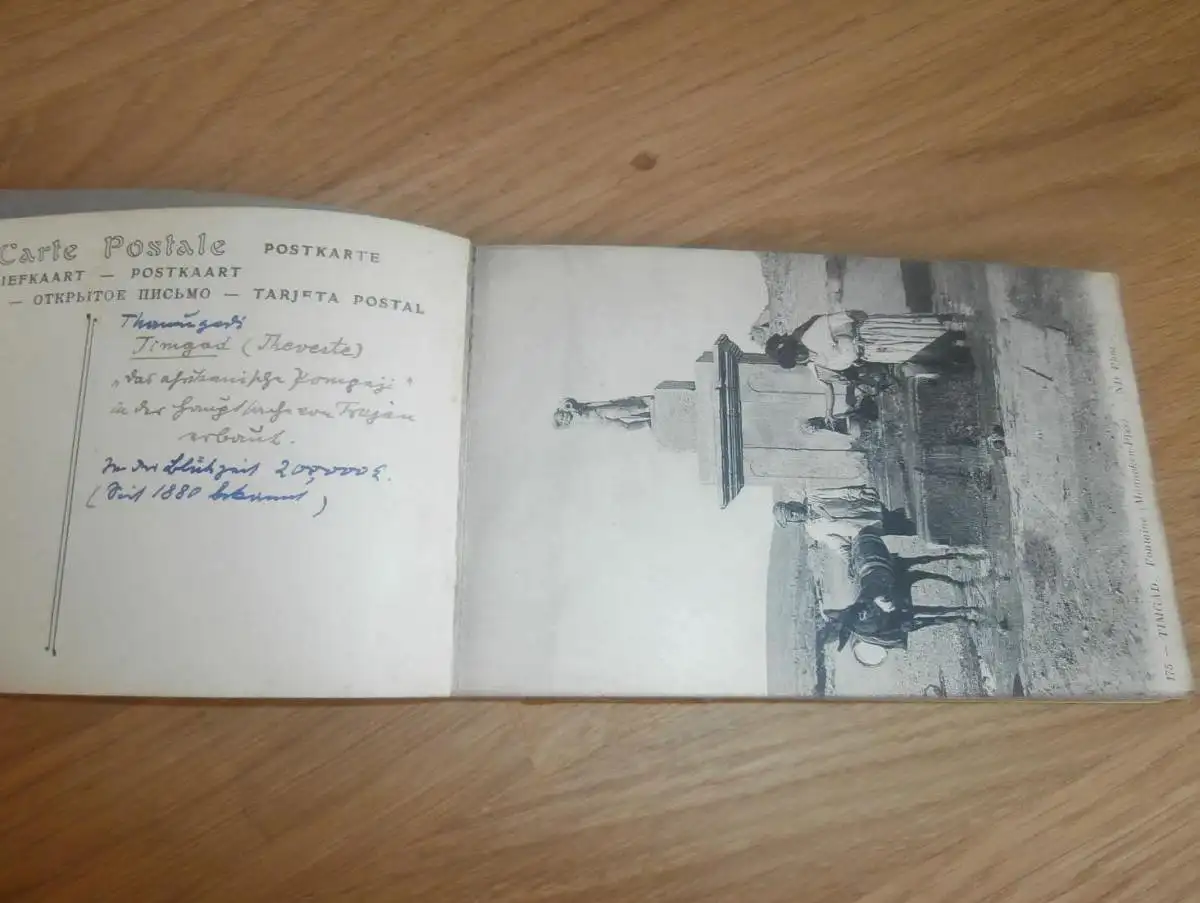 Carte Postale POSTKARTE
IEFKAART — POSTKAART
— ОТКРЫТОЕ ПИСЬМО — TARJETA POSTAL
Thamugadi
Timgad (Theveste)
„das afrikanische Pompeji"
in der Hauptsache von Trajan
erbaut.
In der Blütezeit 200,000 E.
(Seit 1880 bekannt)
175 — TIMGAD. Fontaine (Manneken-Piss) ND Phot.